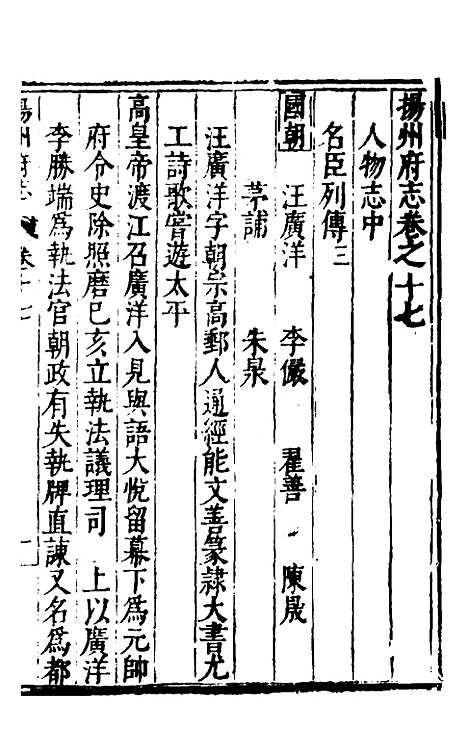 揚州府志卷之十七
人物志中
名臣列傳三
國朝 汪廣洋 李儼 翟善 陳晟
茅誧 朱杲
汪廣洋字朝宗高郵人通經能文善篆隸大書尤
工詩歌甞遊太平
高皇帝渡江召廣洋入見與語大悅留幕下為元帥
府令史除照磨己亥立執法議理司 上以廣洋
李勝端為執法官朝政有失執牌直諫又名為都
揚州府志 卷十七 一